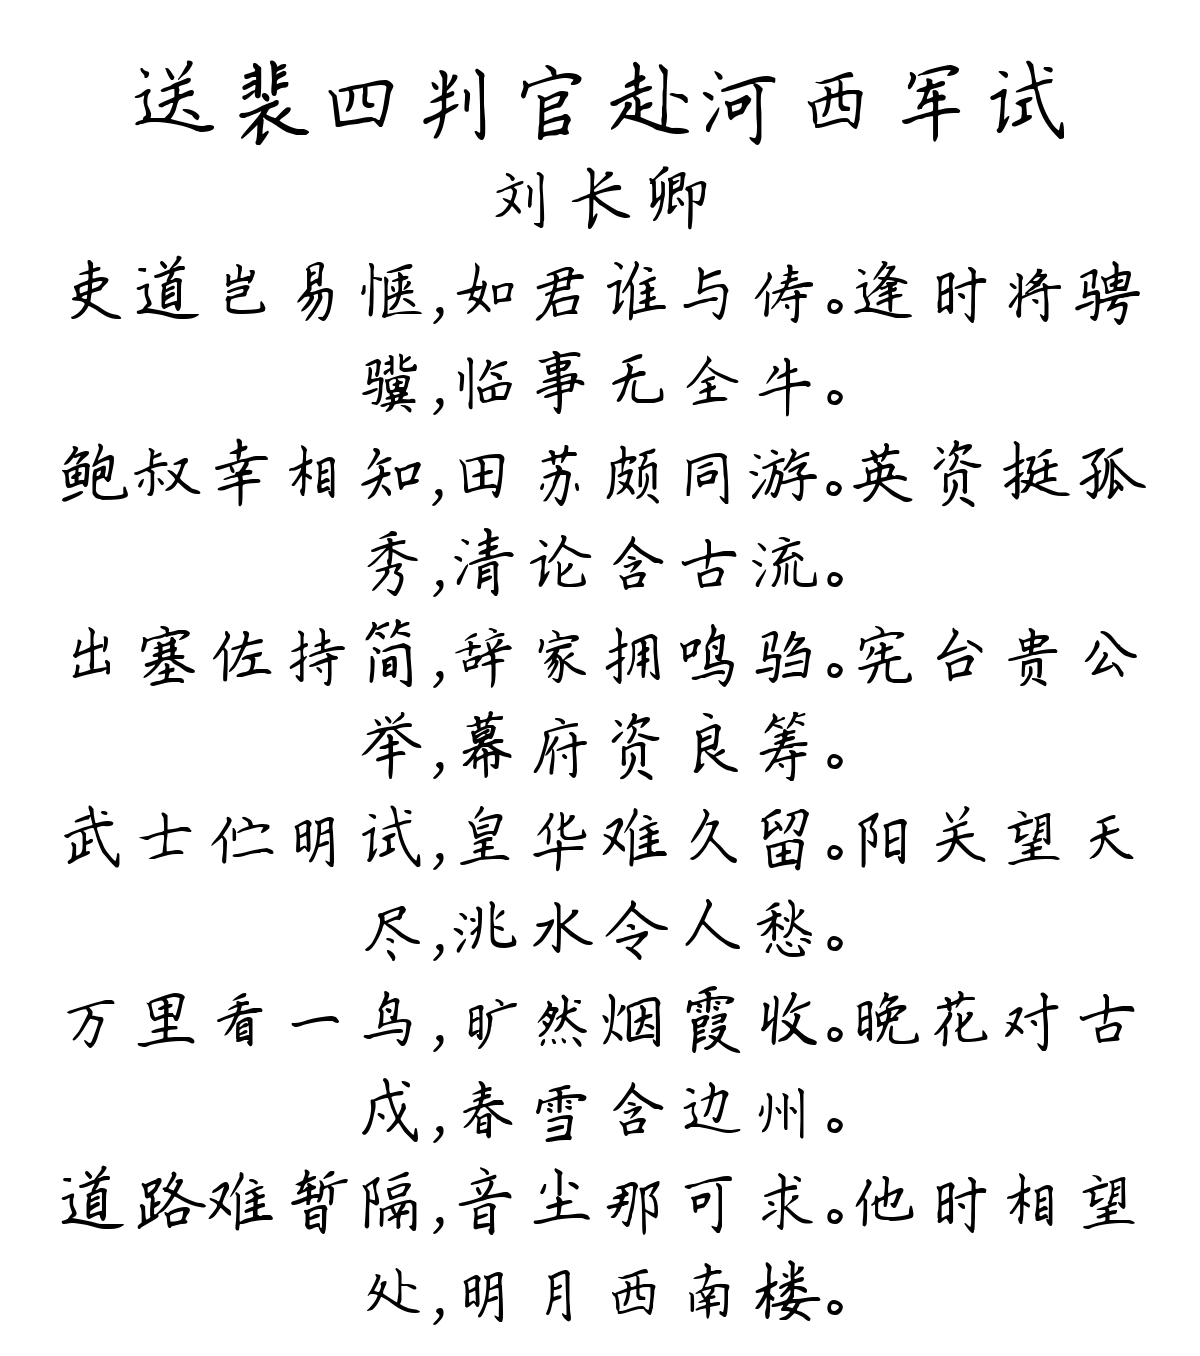 送裴四判官赴河西军试
刘长卿
吏道岂易惬,如君谁与俦。逢时将骋
骥,临事无全牛。
鲍叔幸相知,田苏颇同游。英资挺孤
秀,清论含古流。
出塞佐持简,辞家拥鸣驺。宪台贵公
举,幕府资良筹。
武士伫明试,皇华难久留。阳关望天
尽,洮水令人愁。
万里看一鸟,旷然烟霞收。晚花对古
戍,春雪含边州。
道路难暂隔,音尘那可求。他时相望
处,明月西南楼。